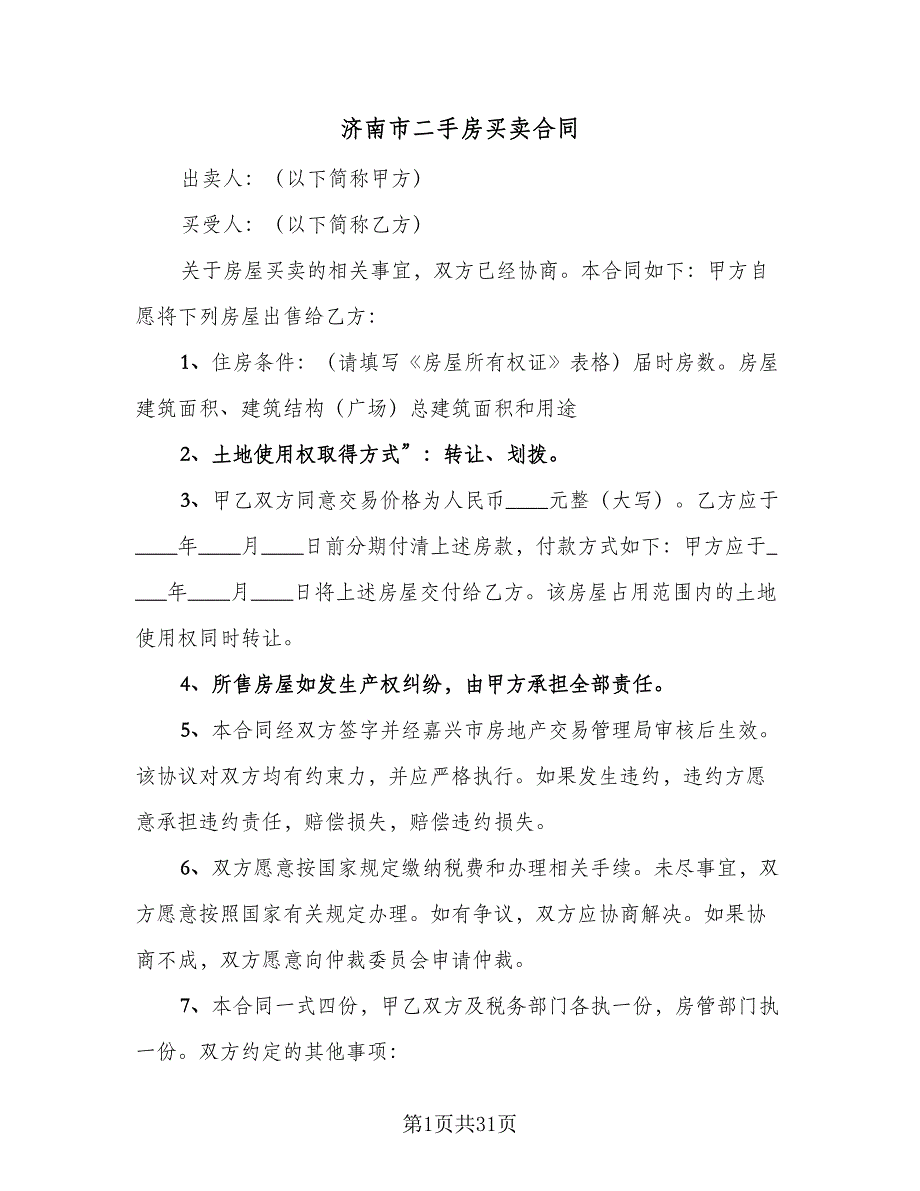 济南市二手房买卖合同
出卖人：（以下简称甲方）
买受人：（以下简称乙方）
关于房屋买卖的相关事宜，双方已经协商。本合同如下：甲方自
愿将下列房屋出售给乙方：
1、住房条件：（请填写《房屋所有权证》表格）届时房数。房屋
建筑面积、建筑结构（广场）总建筑面积和用途
2、土地使用权取得方式”：转让、划拨。
3、甲乙双方同意交易价格为人民币____元整（大写）。乙方应于
____年____月____日前分期付清上述房款，付款方式如下：甲方应于_
___年____月____日将上述房屋交付给乙方。该房屋占用范围内的土地
使用权同时转让。
4、所售房屋如发生产权纠纷，由甲方承担全部责任。
5、本合同经双方签字并经嘉兴市房地产交易管理局审核后生效。
该协议对双方均有约束力，并应严格执行。如果发生违约，违约方愿
意承担违约责任，赔偿损失，赔偿违约损失。
6、双方愿意按国家规定缴纳税费和办理相关手续。未尽事宜，双
方愿意按照国家有关规定办理。如有争议，双方应协商解决。如果协
商不成，双方愿意向仲裁委员会申请仲裁。
7、本合同一式四份，甲乙双方及税务部门各执一份，房管部门执
一份。双方约定的其他事项：
第1页共31页